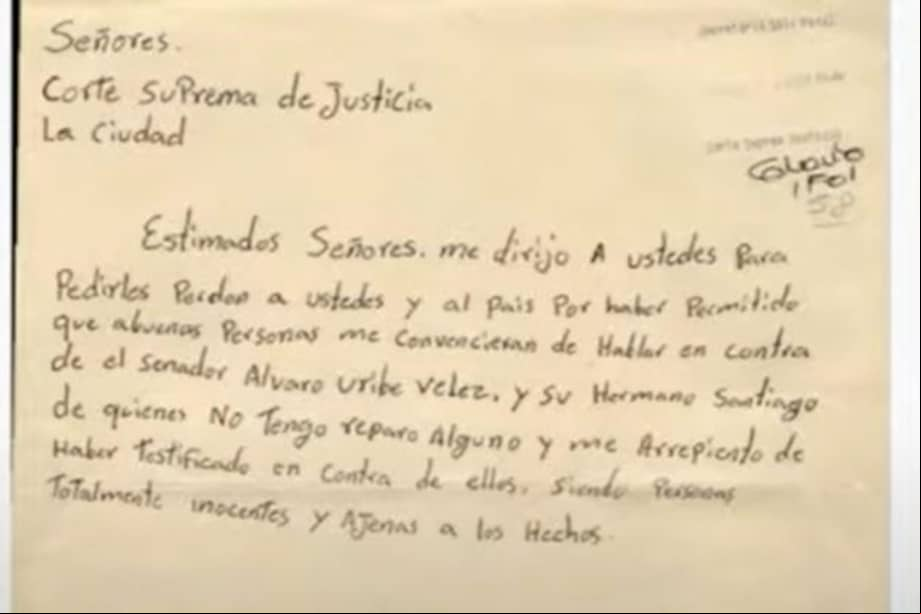 Señores.
Corte Suprema de Justicia
La Ciudad
Estimados Señores. me dirijo A ustedes Para
Pedirles Perdon a ustedes y al pais Por haber Permitido
que abuenas Personas me convencieran de Hablar en contra
de el senador Alvaro uribe velez. y su Hermano Santiago
de quienes No Tengo reparo Alguno y me Arrepiento de
Haber Testificado en contra de ellos, siendo Personas
Totalmente inocentes y Ajenas a los Hechos.